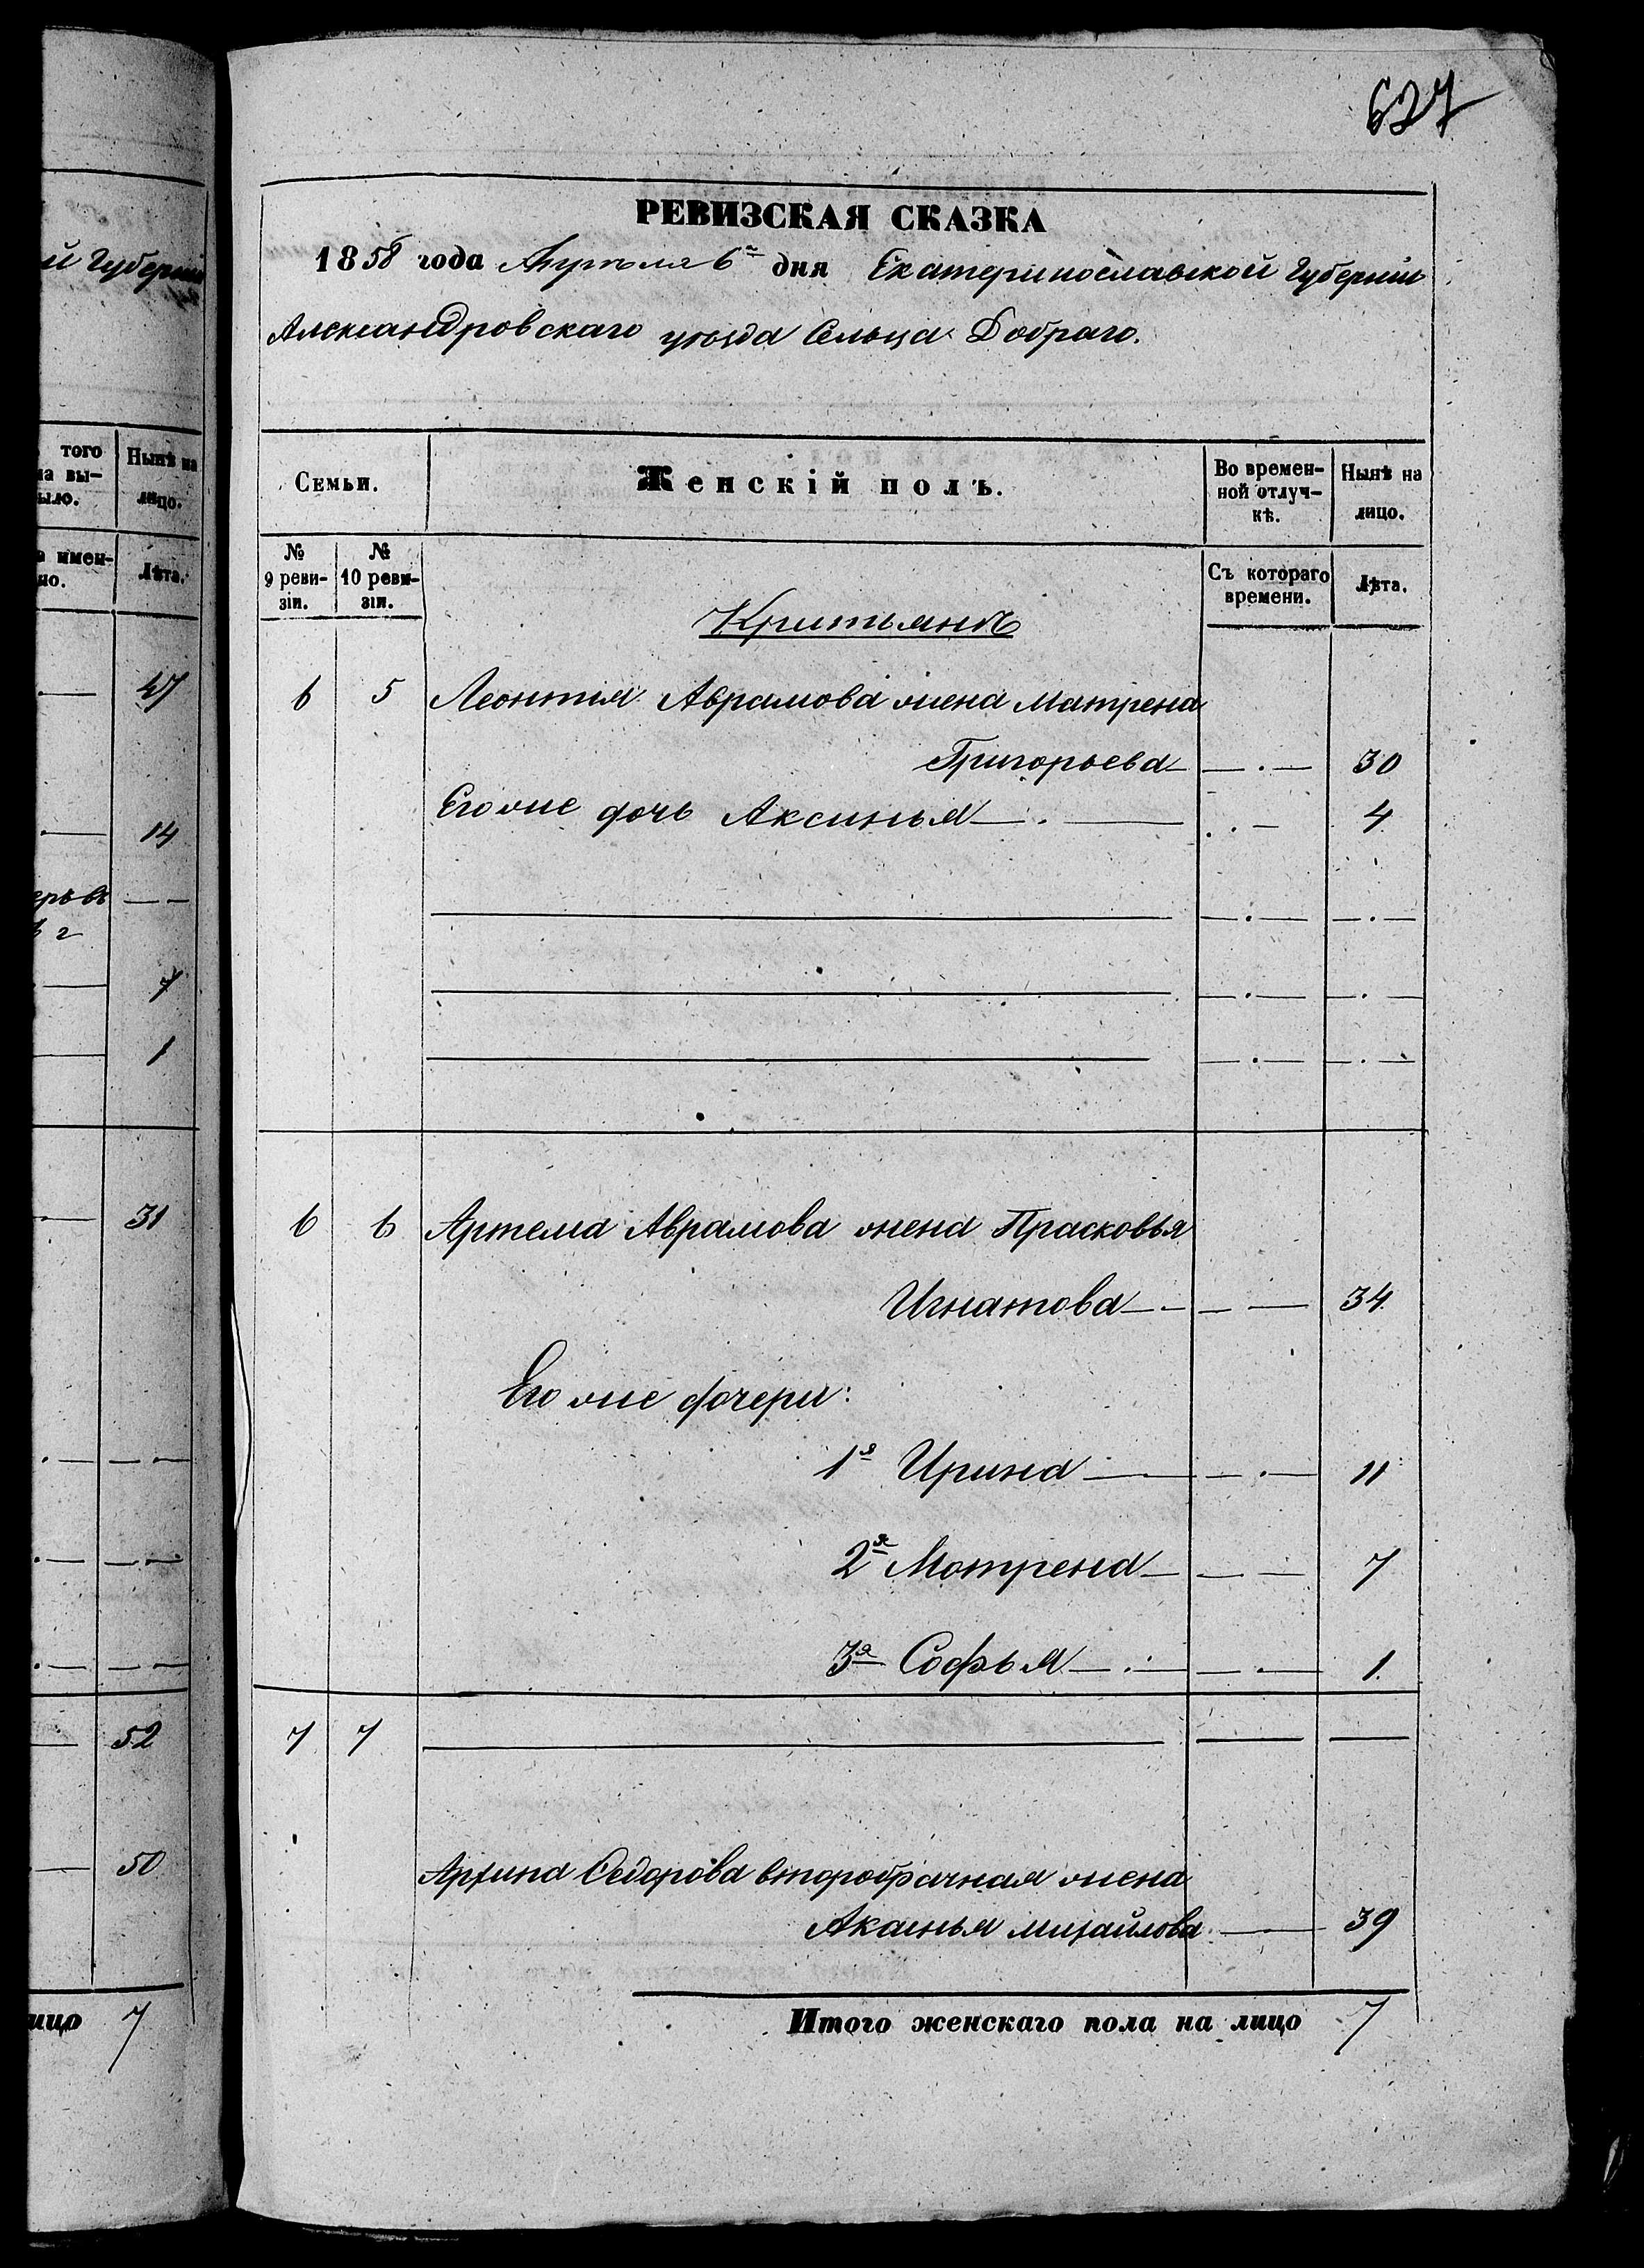 й Губерніи
того
на вы-
было.
Нынѣ на
лицо.
имен-
но.
Лѣта.
47
14
7
1
31
52
50
лицо 7
627
РЕВИЗСКАЯ СКАЗКА
1858 года Апрѣля 6 дня Екатеринославской Губерніи
Александровскаго уѣзда Сельца Добраго.
Семьи.
Женскій полъ.
Во времен-
ной отлуч-
кѣ.
Нынѣ на
лицо.
№
9 реви-
зіи.
№
10 реви-
зіи.
Съ котораго
времени.
Лѣта.
6 5 Леонтія Аврамова жена Матрена
Григорьева 30
Его же дочь Аксинья 4
6 6 Артема Аврамова жена Прасковья
Игнатова 34
Его же дочери:
1я Ирина 11
2я Мотрена 7
3я Софья 1
7 7
Архипа Федорова второбрачная жена
Аксинья Михайлова 39
Итого женскаго пола на лицо 7